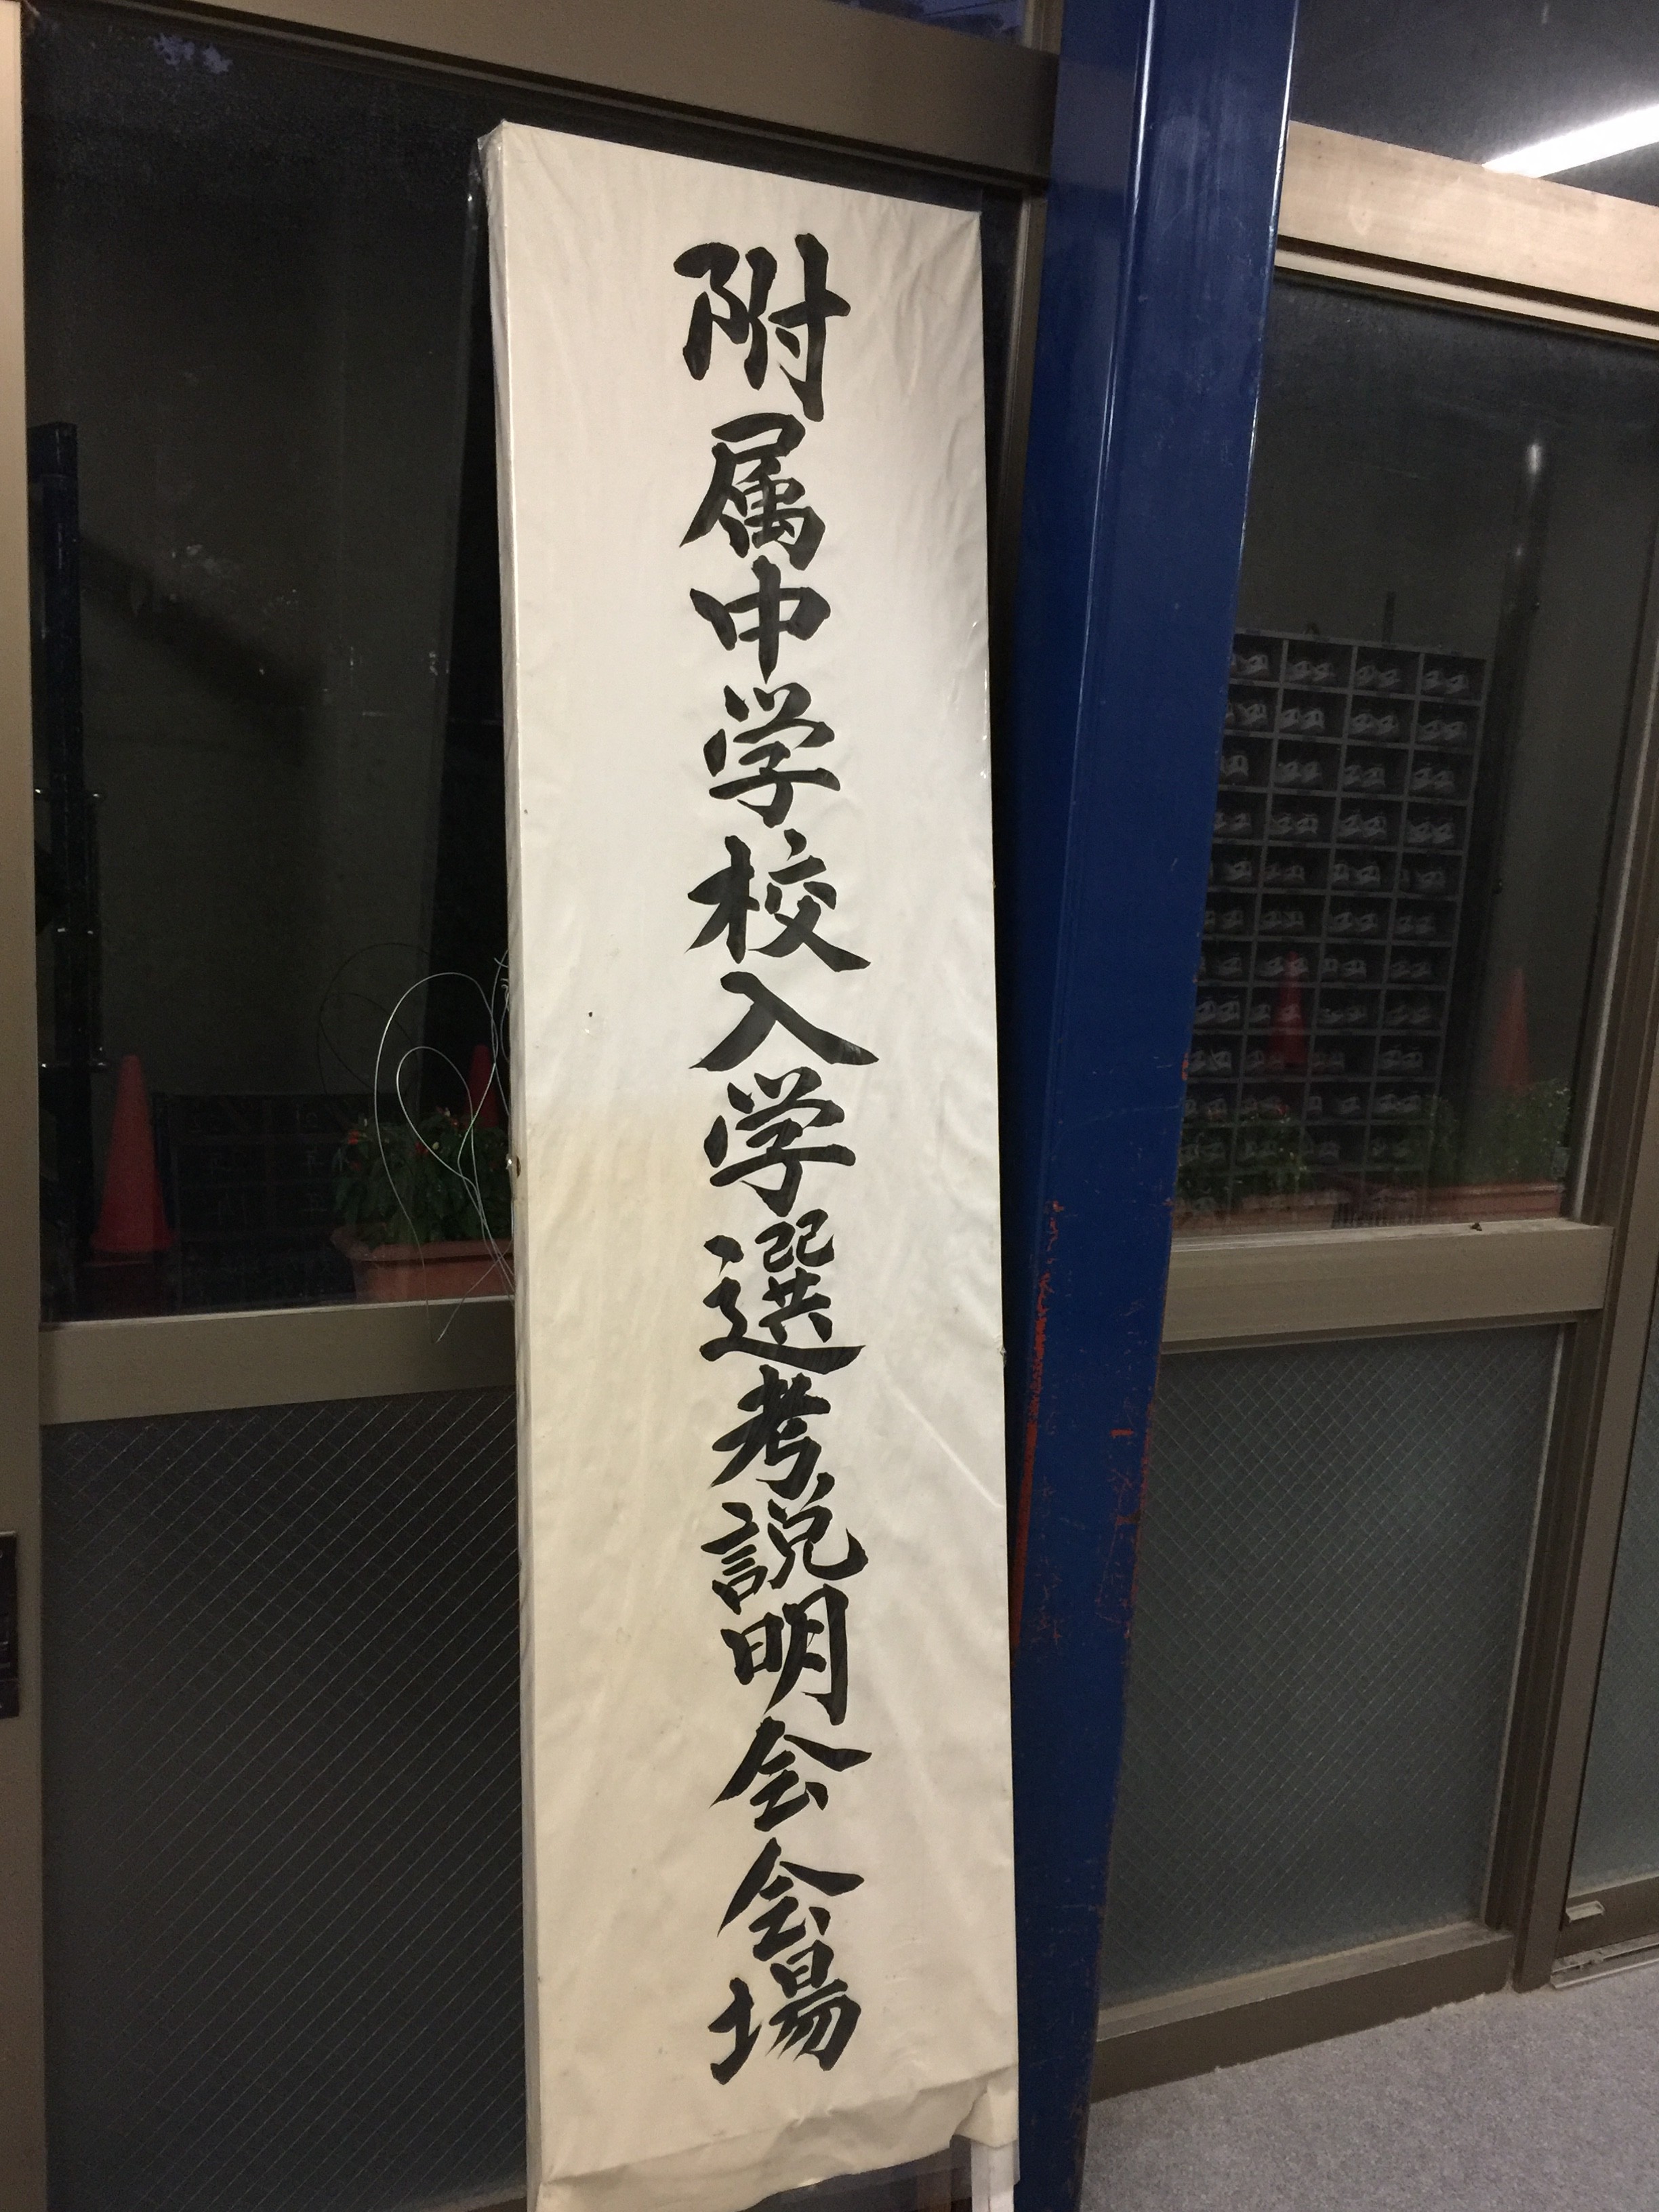 附属中学校入学選考説明会会場